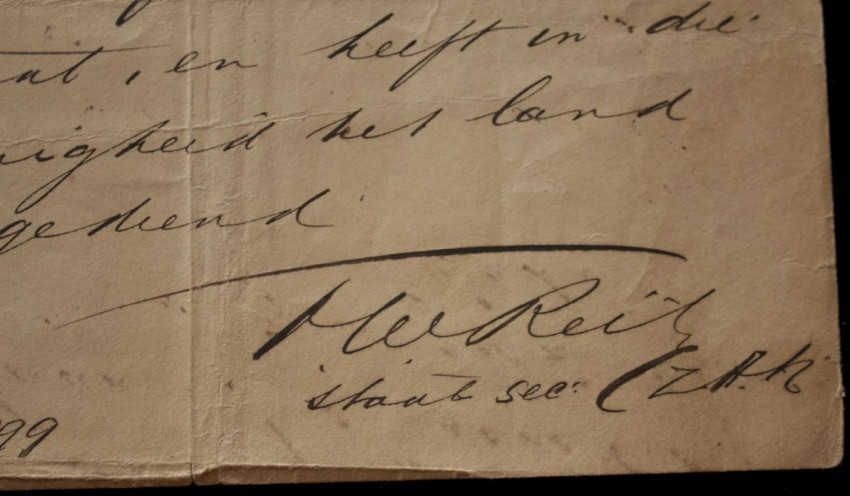 at, en heeft in die
nigheid het land
gediend
FW Reitz
staat sec: Z.A.R.
99